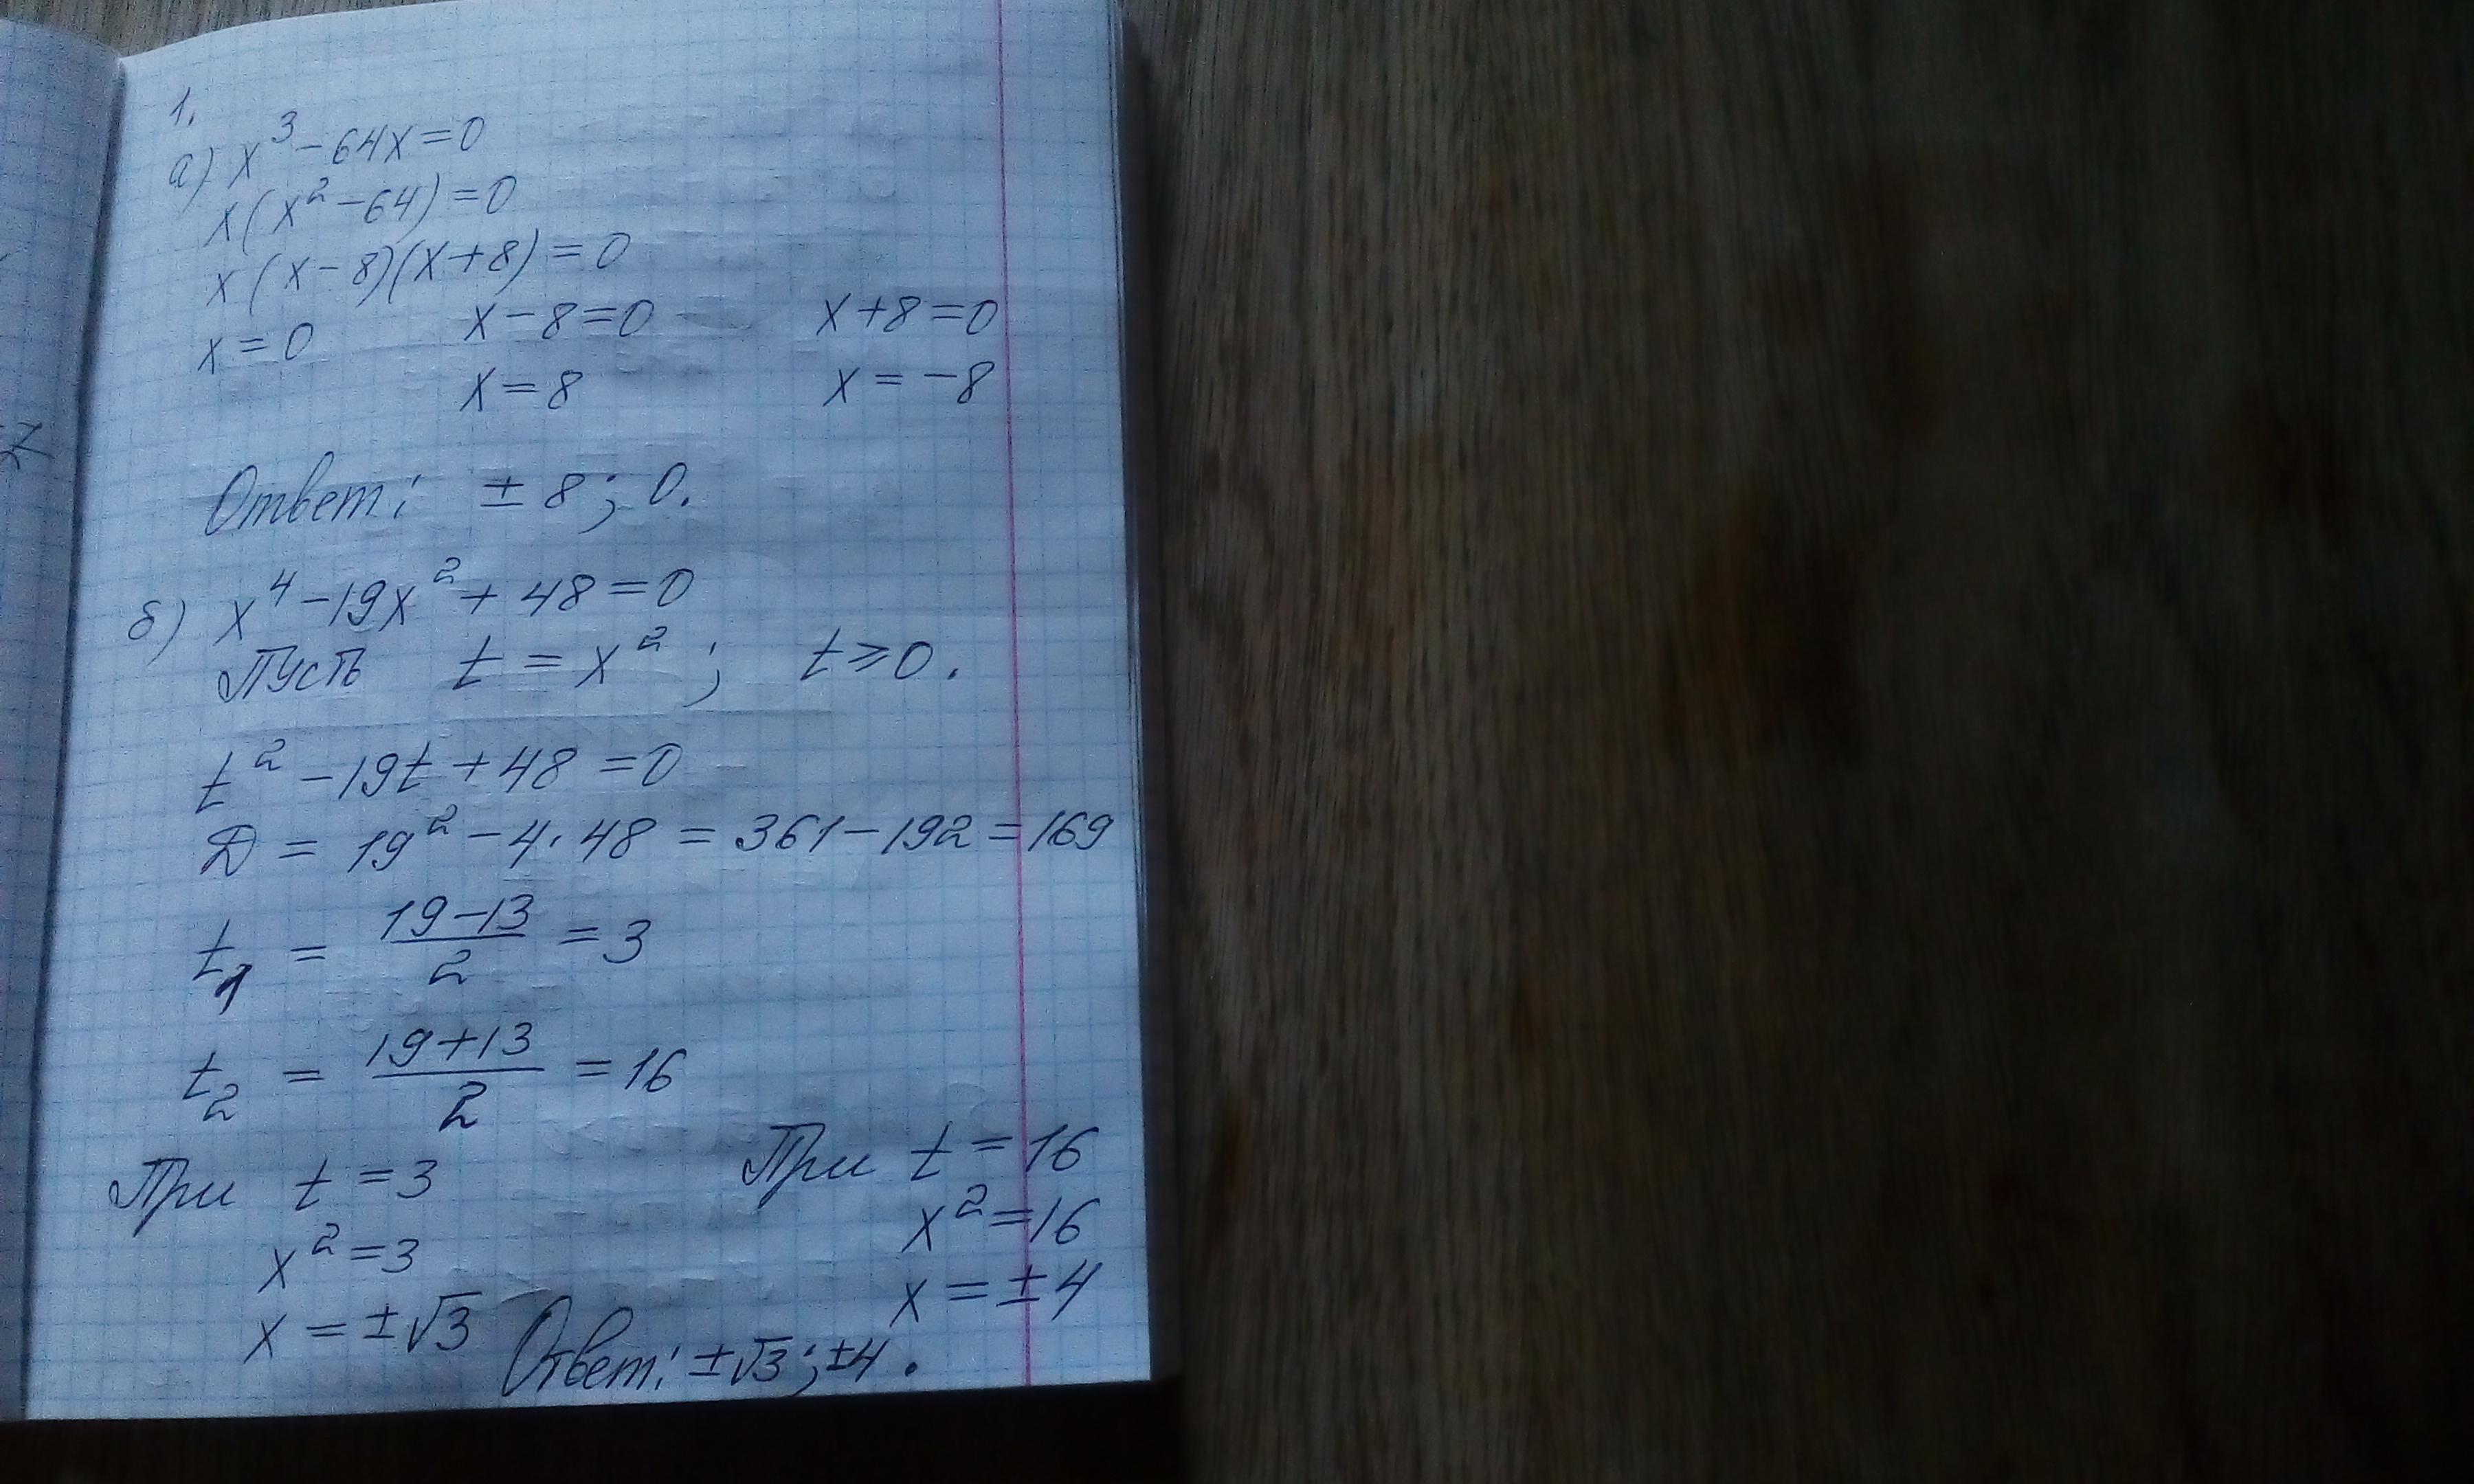 1.
а) x³-64x=0
x(x²-64)=0
x(x-8)(x+8)=0
x=0 x-8=0 x+8=0
x=8 x=-8
Ответ: ±8; 0.
б) x⁴-19x²+48=0
Пусть t=x²; t≥0.
t²-19t+48=0
D=19²-4·48=361-192=169
t₁=(19-13)/2=3
t₂=(19+13)/2=16
При t=3 При t=16
x²=3 x²=16
x=±√3 x=±4
Ответ: ±√3; ±4.